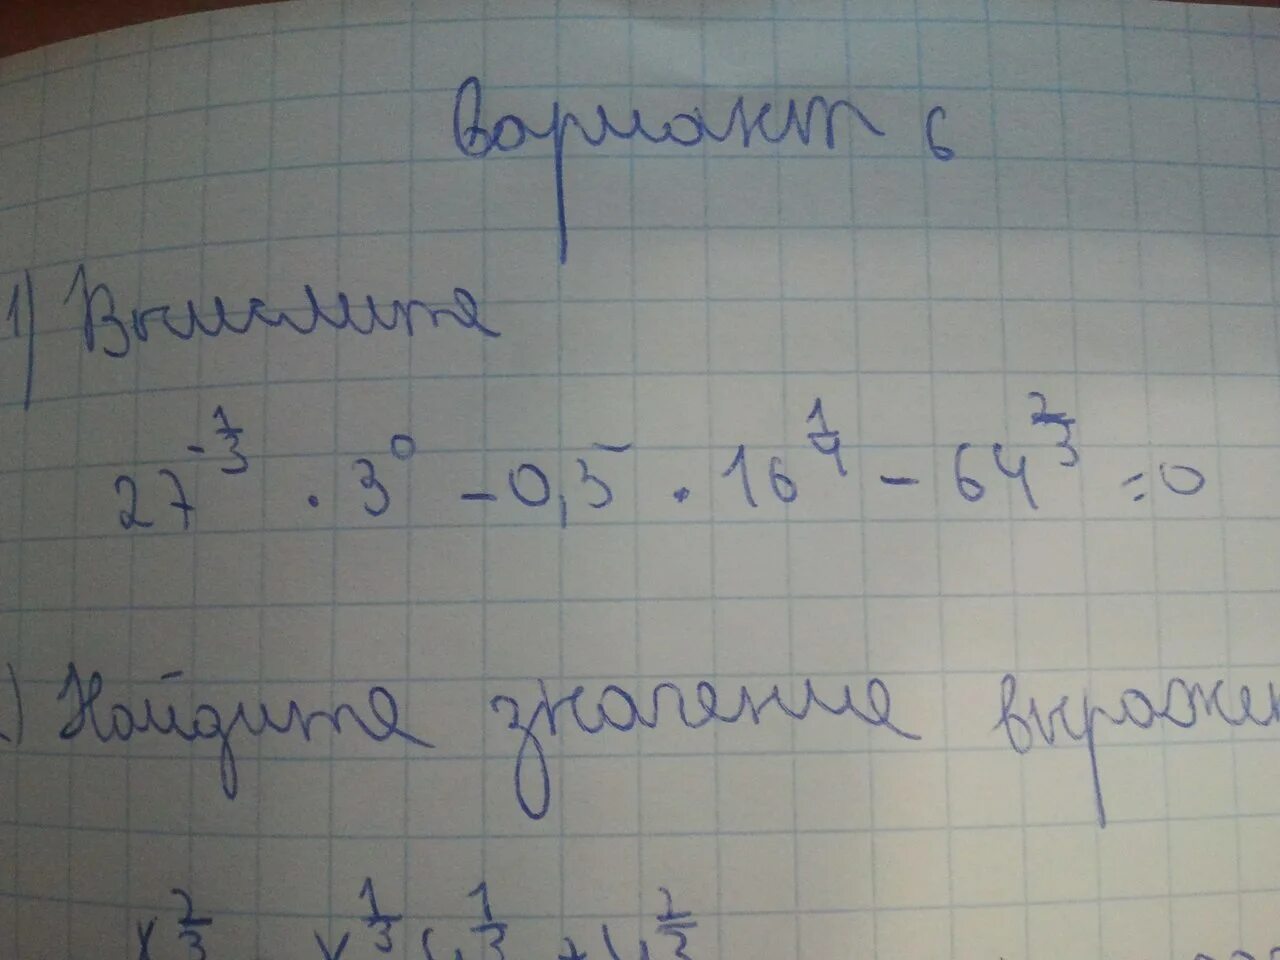 Вариант 6
1) Вычислите
27^{-1/3} · 3^0 - 0,5 · 16^{1/4} - 64^{2/3} = 0
) Найдите значение выражен
x^{2/3} x^{1/3} y^{1/3} + y^{2/3}